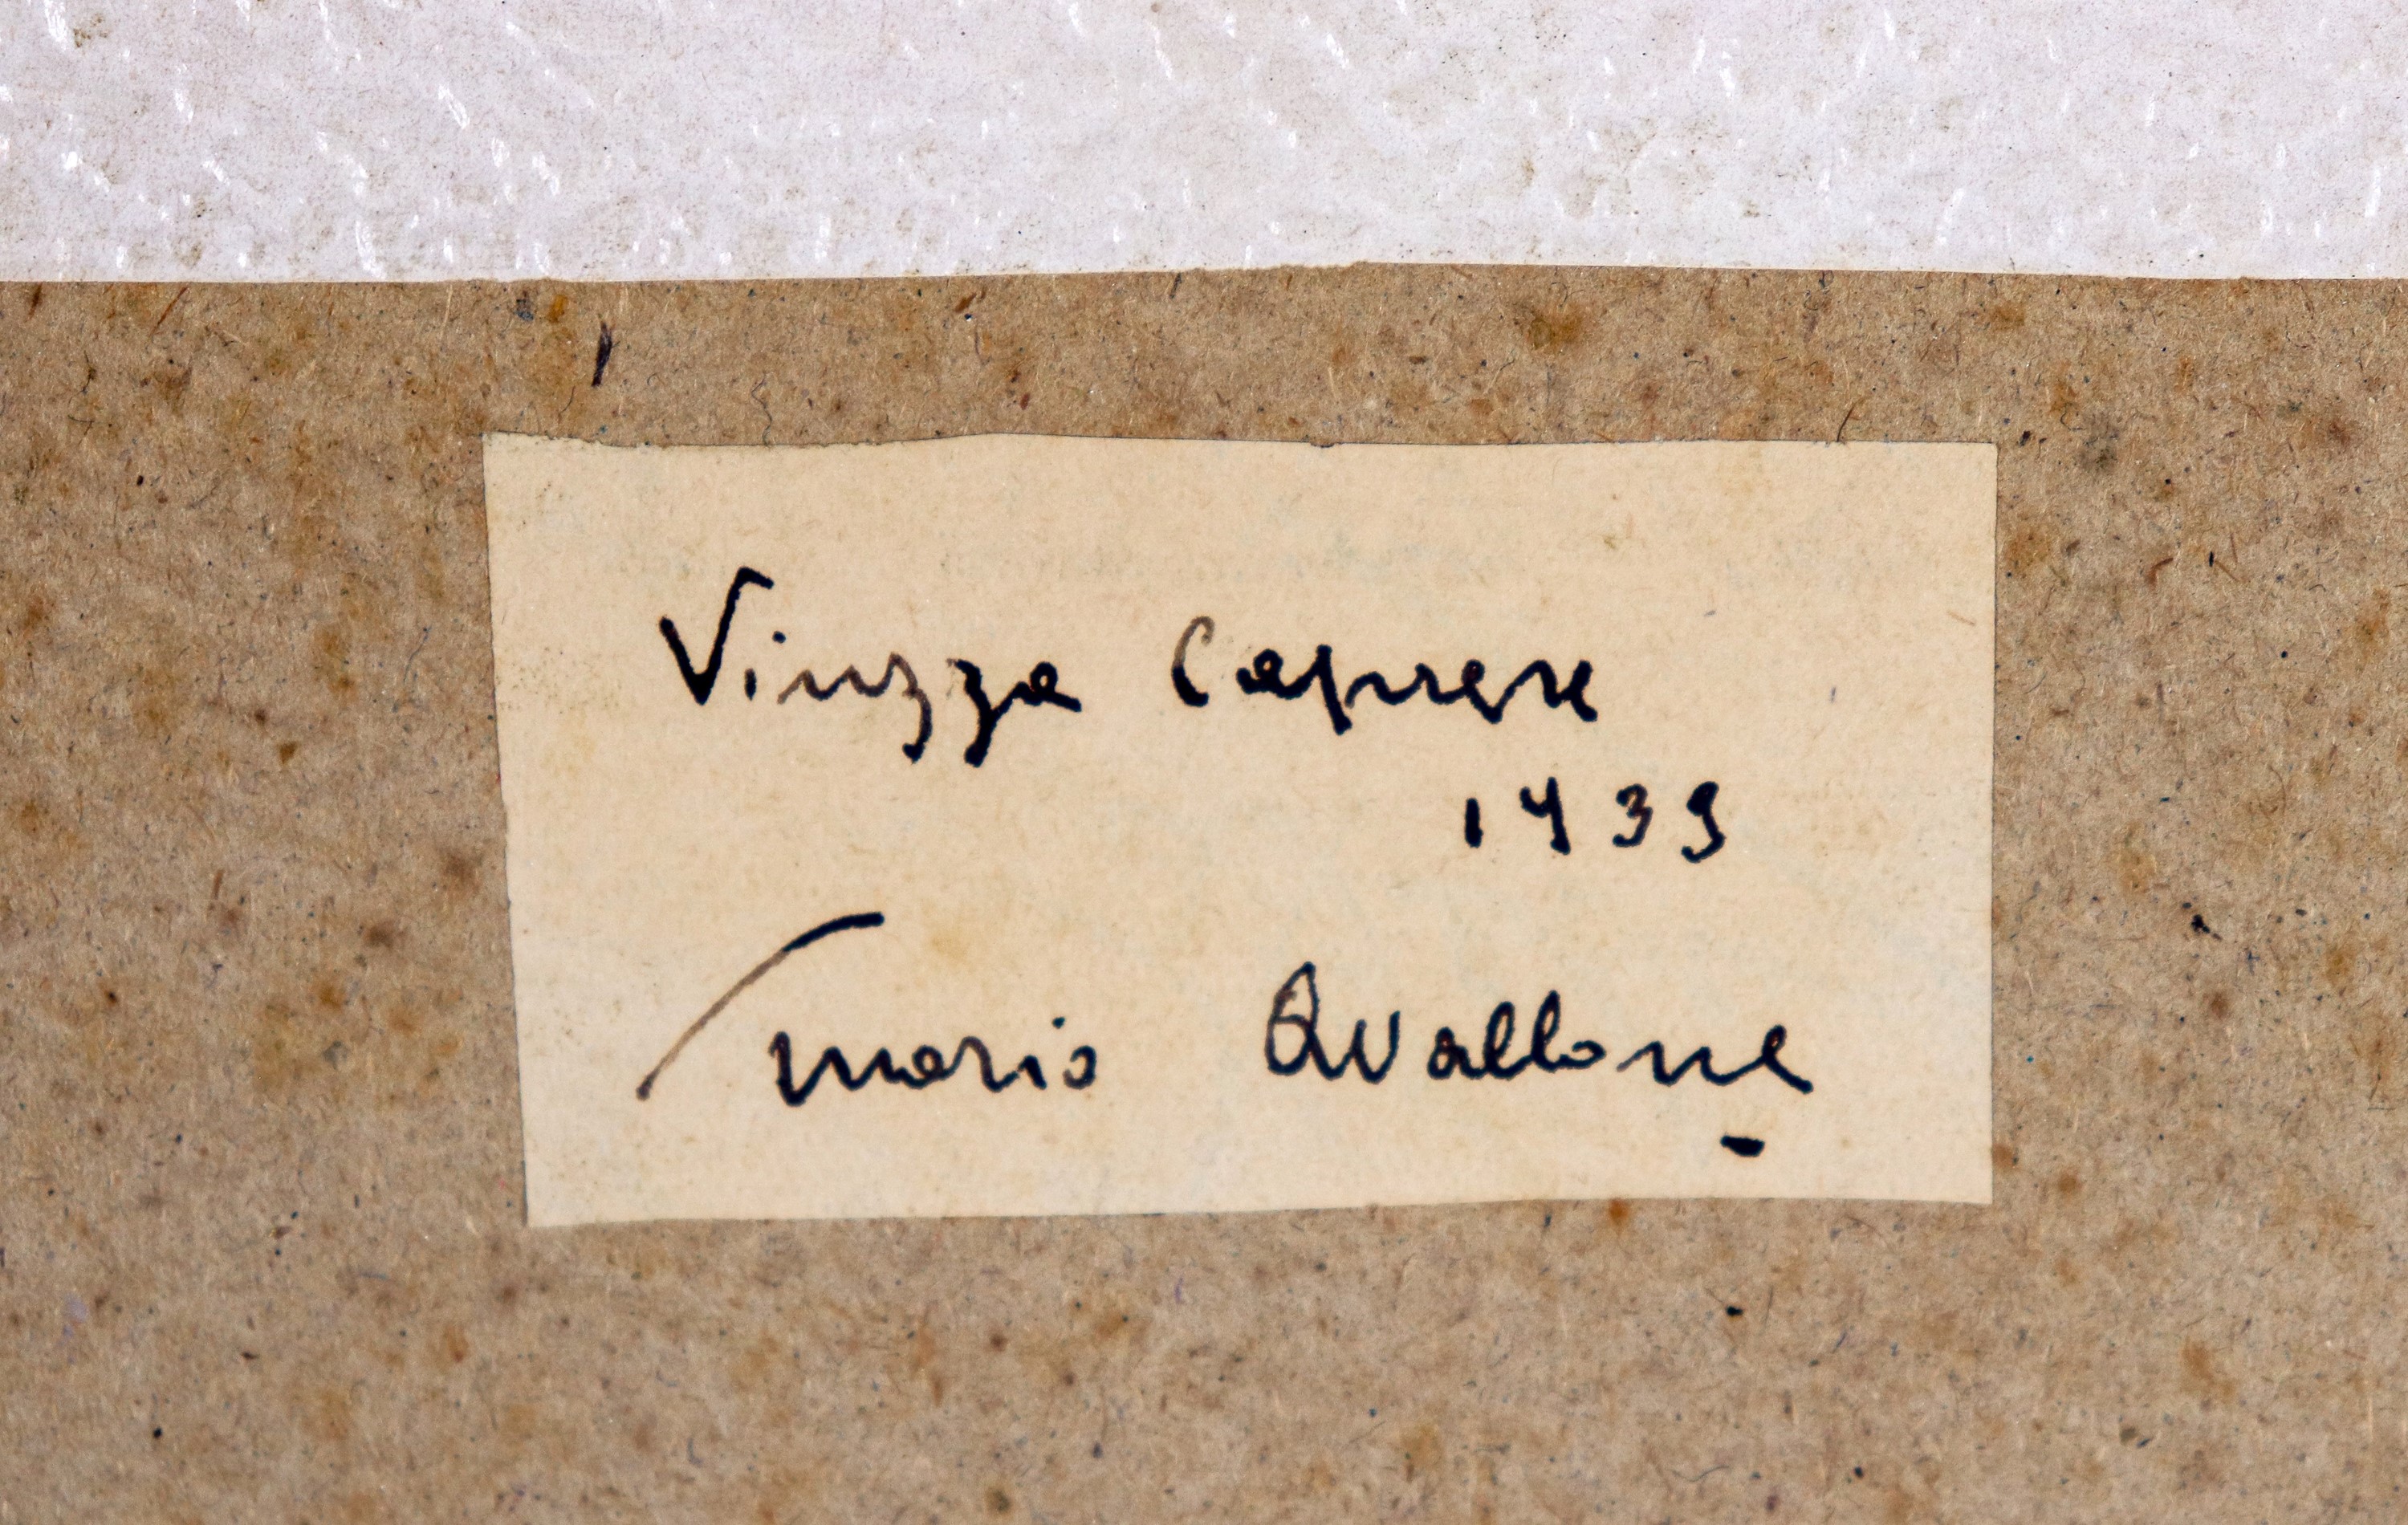 Viuzza Caprese
1939
Mario Avallone